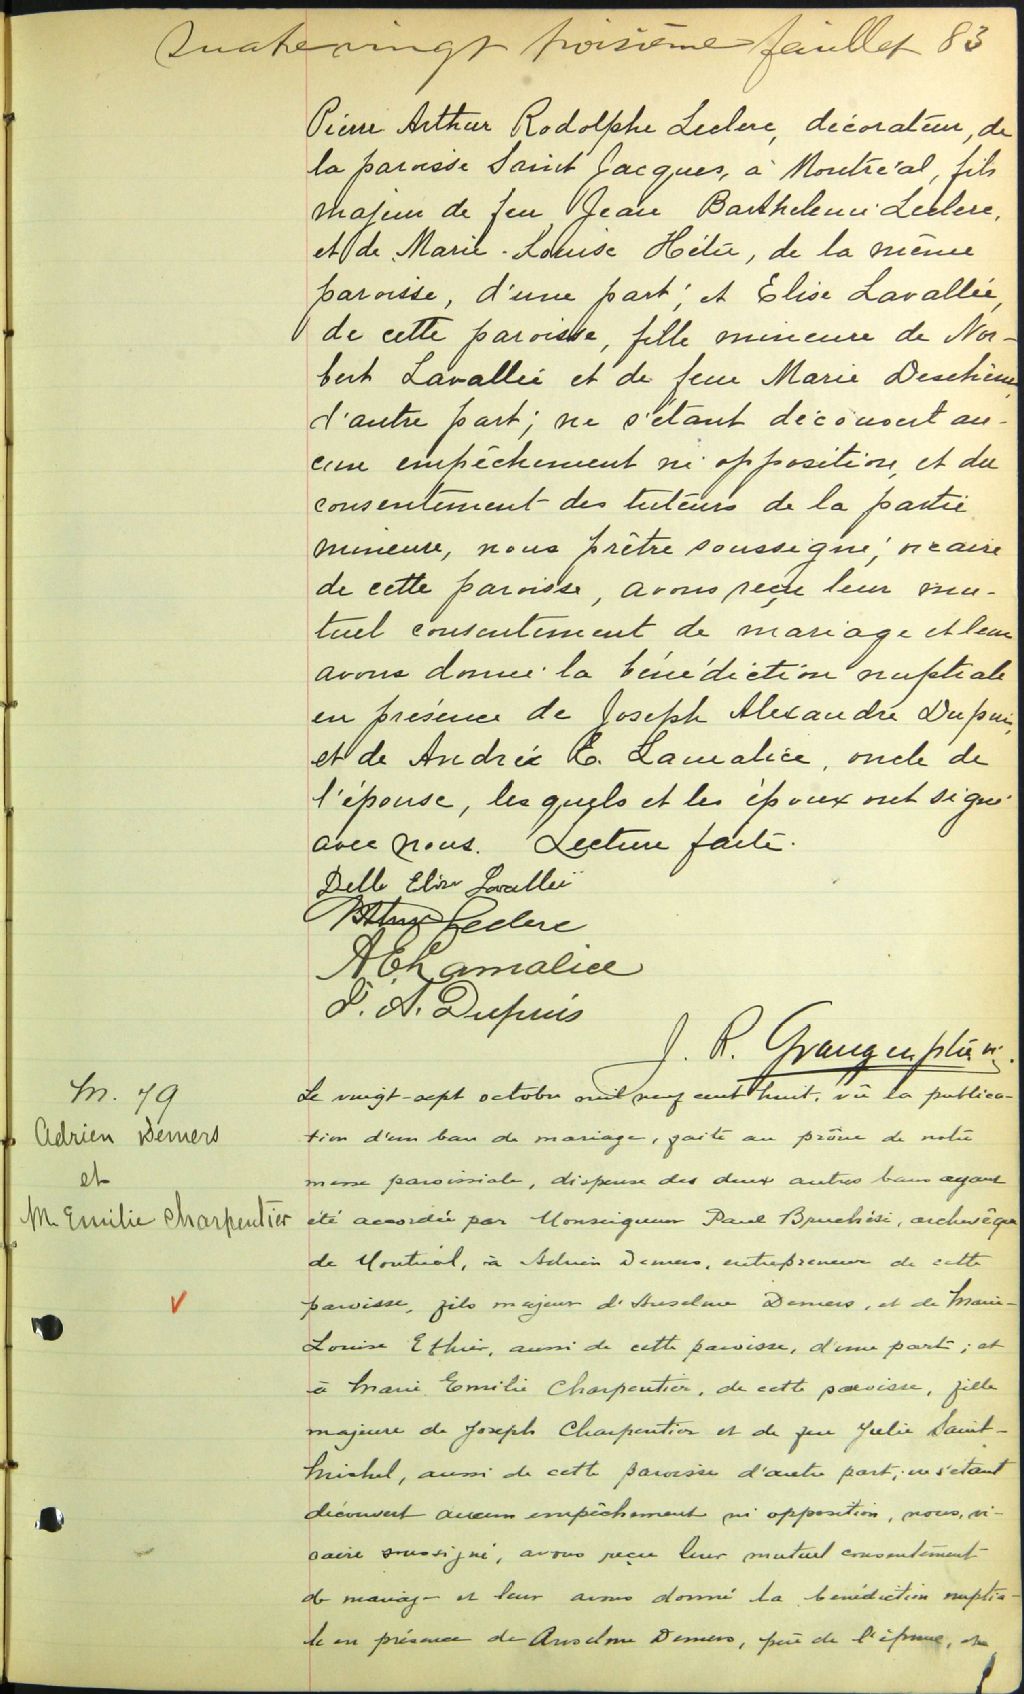 Quatre vingt troisième feuillet 83
Pierre Arthur Rodolphe Leclerc, décorateur, de
la paroisse Saint Jacques, à Montréal, fils
majeur de feu Jean Barthelemi Leclerc,
et de Marie-Louise Hétu, de la même
paroisse, d'une part; et Elise Lavallée,
de cette paroisse, fille mineure de Nor-
bert Lavallée et de feue Marie Deschènes
d'autre part; ne s'étant découvert au-
cun empêchement ni opposition, et du
consentement des tuteurs de la partie
mineure, nous prêtre soussigné, vicaire
de cette paroisse, avons reçu leur mu-
tuel consentement de mariage et leur
avons donné la bénédiction nuptiale
en présence de Joseph Alexandre Dupuis,
et de André E. Lamalice, oncle de
l'épouse, lesquels et les époux ont signé
avec nous. Lecture faite.
Delle Elise Lavallée
Arthur Leclerc
A E Lamalice
J. A. Dupuis
J. R.
M. 79
Adrien Demers
et
M. Emilie Charpentier
Le vingt-sept octobre mil neuf cent huit, vû la publica-
tion d'un ban de mariage, faite au prône de notre
messe paroissiale, dispense des deux autres bans ayant
été accordée par Monseigneur Paul Bruchési, archevêque
de Montréal, à Adrien Demers, entrepreneur de cette
paroisse, fils majeur d'Anselme Demers, et de Marie-
Louise Ethier, aussi de cette paroisse, d'une part; et
à Marie Emilie Charpentier, de cette paroisse, fille
majeure de Joseph Charpentier et de feu Julie Saint-
Michel, aussi de cette paroisse d'autre part; ne s'étant
découvert aucun empêchement ni opposition, nous, vi-
caire soussigné, avons reçu leur mutuel consentement
de mariage et leur avons donné la bénédiction nuptia-
le en présence de Anselme Demers, père de l'époux, et